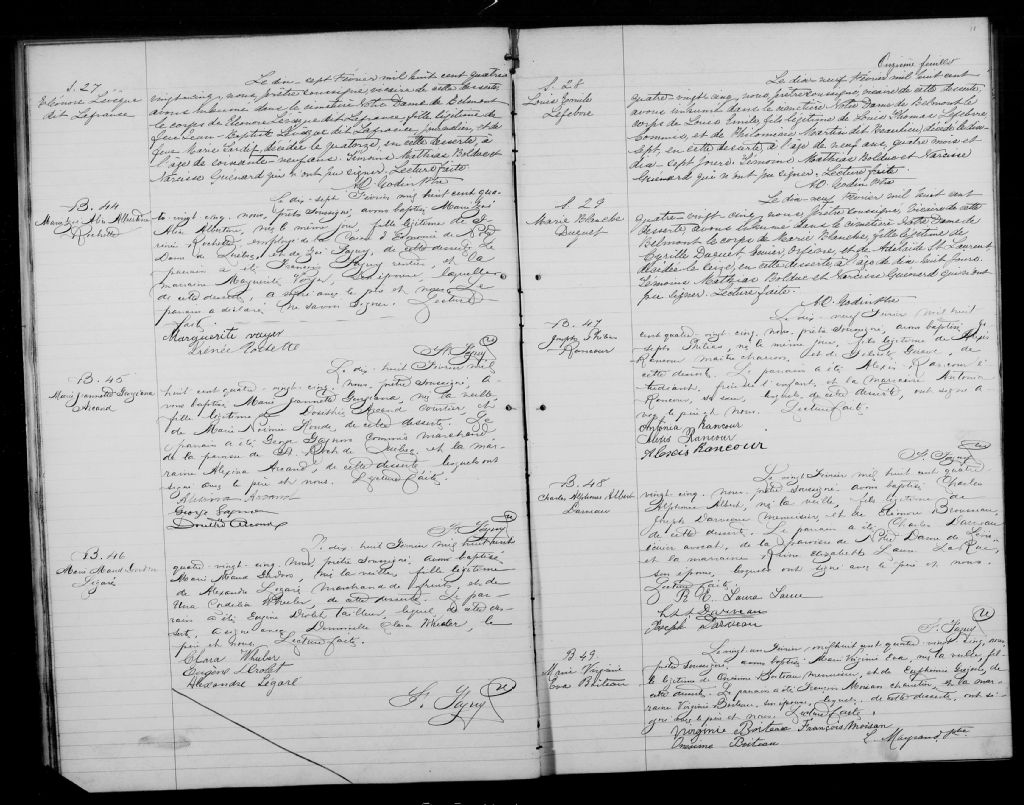 S. 27
Eléonore Lévêque
dit Lafrance
Le dix-sept Février mil huit cent quatre
vingt cinq, nous, prêtre soussigné, vicaire de cette desserte,
avons inhumé dans le cimetière Notre Dame de Belmont
le corps de Eléonore Lévêque dit Lafrance, fille légitime de
feu Jean-Baptiste Lévêque dit et de
feue Marie décédée le quatorze, en cette desserte, à
l'âge de soixante-neuf ans. Témoins Mathias Bolduc et
Narcisse Guenard qui n'ont pu signer. Lecture faite
M. Godin Ptre
B. 44
Marie Albertine
Rochette
Le dix-sept Février mil huit cent qua-
tre-vingt-cinq, nous, prêtre soussigné, avons baptisé Marie
Albertine, née le même jour, fille légitime de I-
rénée Rochette, employé de la Caisse d'Economie de Notre
Dame de Québec, et de de cette desserte. Le
parrain a été François rentier, et la
marraine Marguerite Voyer, son épouse, laquelle
de cette desserte, a signé avec le père et nous. Le
parrain a déclaré ne savoir signer. Lecture
faite.
Marguerite voyer
Irénée Rochette
B. 45
Marie Jeannette Georgiana
Arcand
Le dix-huit Février mil
huit cent quatre-vingt-cinq, nous, prêtre soussigné, a-
vons baptisé Marie Jeannette Georgiana, née la veille,
fille légitime de Dosithée Arcand courtier, et
de Marie Noémie de cette desserte. Le
parrain a été George Gagnon Commis marchand,
de la paroisse de St. Roch de Québec, et la mar-
raine Alexina Arcand, de cette desserte, lesquels ont
signé avec le père et nous. Lecture faite.
Alexina Arcand
George Gagnon
Arcand
B. 46
Marie Maud
Légaré
Le dix-huit Février mil huit cent
quatre-vingt-cinq, nous, prêtre soussigné, avons baptisé
Marie Maud née la veille, fille légitime
de Alexandre Légaré marchand de et de
Una Cordelia Wheeler, de cette desserte. Le par-
rain a été Eugène Drolet tailleur, lequel de cette des-
serte, a signé avec Demoiselle Clara Wheeler, le
père et nous. Lecture faite.
Clara Wheeler
Eugène Drolet
Alexandre Legaré
Onzième feuillet
S. 28
Louis Emile
Lefebvre
Le dix-neuf Février mil huit cent
quatre-vingt cinq, nous, prêtre soussigné, vicaire de cette desserte,
avons inhumé dans le cimetière Notre Dame de Belmont le
corps de Louis Emile, fils légitime de Louis Thomas Lefebvre,
Commis, et de Philomène Martin dit Beaulieu, décédé le dix-
sept, en cette desserte, à l'âge de neuf ans, quatre mois et
dix-sept jours. Témoins Mathias Bolduc et Narcisse
Guenard qui n'ont pu signer. Lecture faite.
M. Godin Ptre
S. 29
Marie Blanche
Duquet
Le dix-neuf Février mil huit cent
quatre-vingt cinq, nous, prêtre soussigné, vicaire de cette
desserte, avons inhumé dans le cimetière Notre Dame de
Belmont le corps de Marie Blanche, fille légitime de
Cyrille Duquet, Orfèvre, et de Adelaïde St. Laurent
décédée le seize, en cette desserte, à l'âge de dix-huit jours.
Témoins Mathias Bolduc et Narcisse Guenard qui n'ont
pu signer. Lecture faite.
M. Godin Ptre
B. 47
Joseph
Rancour
Le dix-neuf Février mil huit
cent quatre-vingt-cinq, nous, prêtre soussigné, avons baptisé Jo-
seph né le même jour, fils légitime de Alexis
Rancour maître charron, et de de
cette desserte. Le parrain a été Alexis Rancour é-
tudiant, frère de l'enfant, et la marraine Antonia
Rancour, sa sœur, lesquels, de cette desserte, ont signé a-
vec le père et nous. Lecture faite.
Antonia Rancour
Alexis Rancour
Alexis Rancour
B. 48
Charles Alphonse Albert
Darveau
Le vingt Février mil huit cent quatre
vingt-cinq, nous, prêtre soussigné, avons baptisé Charles
Alphonse Albert, né la veille, fils légitime de
Joseph Darveau menuisier et de Eléonore Brousseau,
de cette desserte. Le parrain a été Charles Darveau
avocat, de la paroisse de Notre Dame de
et la marraine Elizabeth Laura LaRue,
son épouse, lesquels ont signé avec le père et nous.
Lecture faite.
R. E. Laura Larue
Darveau
Joseph Darveau
B. 49
Marie Virginie
Eva Boiteau
Le vingt-un Février mil huit cent quatre-vingt-cinq, nous
prêtre soussigné, avons baptisé Marie Virginie Eva, née la veille, fil-
le légitime de Onésime Boiteau menuisier, et de Euphémie de
cette desserte. Le parrain a été François Moisan charretier, et la mar-
raine Virginie Boiteau, son épouse, lesquels, de cette desserte, ont si-
gné avec le père et nous. Lecture faite.
Virginie Boiteau François Moisan
Onésime Boiteau